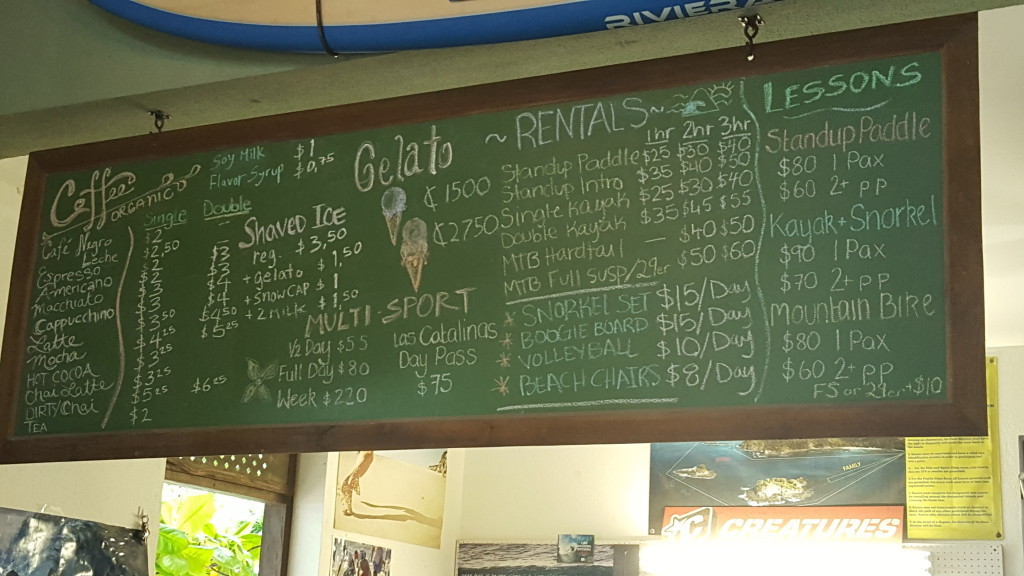 RIVIERA
Coffee
ORGANICO
Soy Milk $1
Flavor Syrup $0,75
Single Double
Café Negro
Leche
Espresso
Americano
Macchiato
Cappuccino
Latte
Mocha
HOT COCOA
Chai Latte
DIRTY Chai $6.25
TEA $2
Shaved Ice
reg. $3,50
+ Gelato $1.50
+ SNOWCAP $1
+ 2 MILK $1.50
Gelato
₡1500
₡2750
MULTI-SPORT
½ Day $55
Full Day $80
Week $220
Las Catalinas
Day Pass
$75
~ RENTALS ~
1hr 2hr 3hr
Standup Paddle $25 $30 $40
Standup Intro $35 $40 $50
Single Kayak $25 $30 $40
Double Kayak $35 $45 $55
MTB Hardtail — $40 $50
MTB Full Susp/29er $50 $60
* SNORKEL SET $15/Day
* BOOGIE BOARD $15/Day
* VOLLEYBALL $10/Day
* BEACH CHAIRS $8/Day
LESSONS
Standup Paddle
$80 1 Pax
$60 2+ pp
Kayak + Snorkel
$90 1 Pax
$70 2+ pp
Mountain Bike
$80 1 Pax
$60 2+ pp
FS or 29er +$10
FAMILY
CREATURES